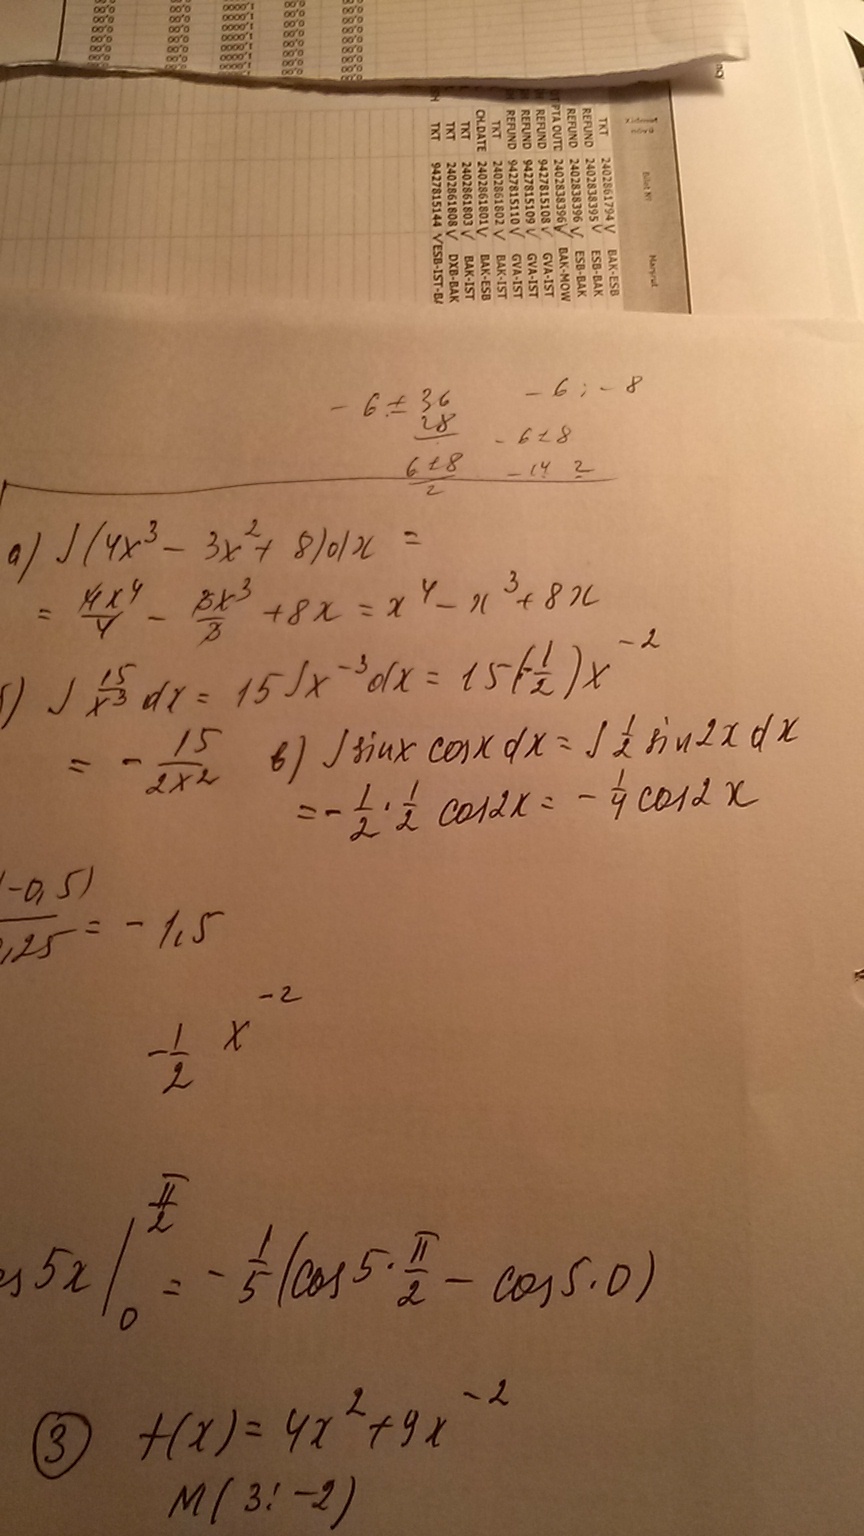 TKT 2402861794 √ BAK-ESB
REFUND 2402838395 √ ESB-BAK
REFUND 2402838396 √ ESB-BAK
PTA OUTC 2402838396 √ BAK-MOW
REFUND 9427815108 √ GVA-IST
REFUND 9427815109 √ GVA-IST
REFUND 9427815110 √ GVA-IST
TKT 2402861802 √ BAK-IST
CH.DATE 2402861801 √ BAK-ESB
TKT 2402861803 √ BAK-IST
TKT 2402861808 √ DXB-BAK
TKT 9427815144 √ ESB-IST-B
- 6 ± 36 - 6 ; - 8
28 - 6 ± 8
6 ± 8 / 2 - 14 2
а) ∫(4x³ - 3x² + 8)dx =
= 4x⁴/4 - 3x³/3 + 8x = x⁴ - x³ + 8x
б) ∫ 15/x³ dx = 15∫x⁻³dx = 15(-1/2)x⁻²
= - 15/2x² в) ∫sinx cosx dx = ∫ 1/2 sin2x dx
= - 1/2 · 1/2 cos2x = - 1/4 cos2x
(-0,5)
,25 = - 1,5
-1/2 x⁻²
s 5x |₀^π/2 = - 1/5 (cos 5 · π/2 - cos 5 · 0)
③ f(x) = 4x² + 9x⁻²
M(3; -2)